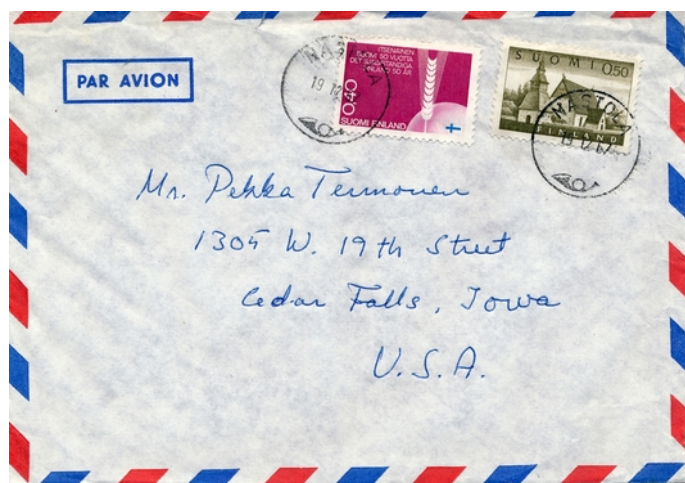 PAR AVION
ITSENÄINEN
SUOMI 50 VUOTTA
DET SJÄLVSTÄNDIGA
FINLAND 50 ÅR
0,40
SUOMI FINLAND
SUOMI 0,50
FINLAND
NASTOLA
19.12.67
NASTOLA
19.12.67
Mr. Pekka Termonen
1305 W. 19th Street
Cedar Falls, Iowa
U.S.A.